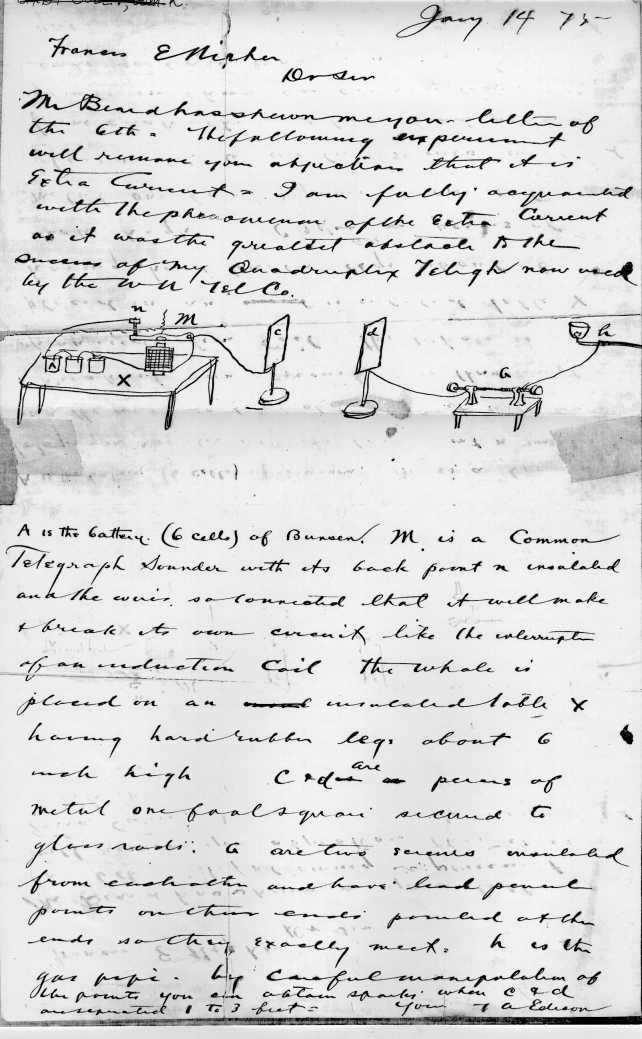 Jany 14 75-
Francis E Nipher
Dr Sir
Mr Beard has shewn me your letter of
the 6th = The following experiment
will remove your objections that it is
Extra Current = I am fully acquainted
with the phenomenon of the Extra Current
as it was the greatest obstacle to the
success of my Quadruplex Telegh now used
by the W U Tel Co.
n M c d h
A X G
A is the battery. (6 cells) of Bunsen. M. is a Common
Telegraph Sounder with its back point n insulated
and the wires so connected that it will make
& break its own circuit like the interrupter
of an induction Coil The whole is
placed on an insulated table X
having hard rubber legs about 6
inch high C & d are pieces of
metal one foot square secured to
glass rods. G are two screws insulated
from each other and have lead pencil
points on their ends pointed at the
ends so they exactly meet = h is the
gas pipe - by careful manipulation of
the points you can obtain sparks when C & d
are separated 1 to 3 feet = Your T A Edison